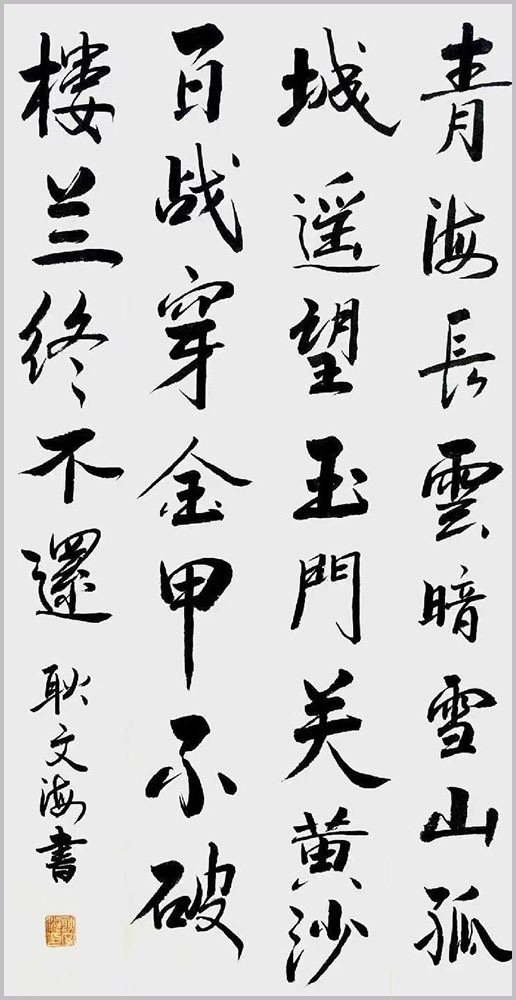 青海長雲暗雪山孤
城遥望玉門关黄沙
百战穿金甲不破
樓兰終不還
耿文海書